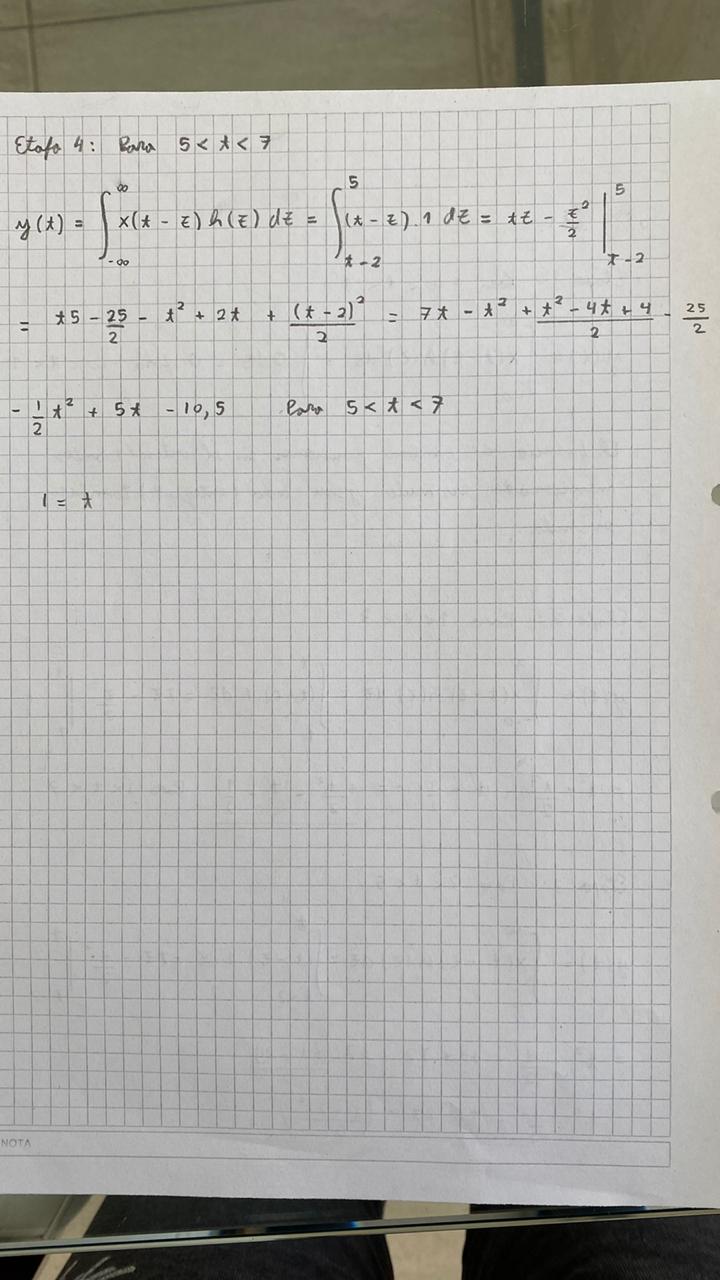 Etapa 4: Para 5 < t < 7
y(t) = ∫_{-∞}^{∞} x(t - z) h(z) dz = ∫_{t-2}^{5} (t - z) . 1 dz = tz - z²/2 |_{t-2}^{5}
= t5 - 25/2 - t² + 2t + (t - 2)²/2 = 7t - t² + (t² - 4t + 4)/2 - 25/2
- 1/2 t² + 5t - 10,5 Para 5 < t < 7
1 = t
NOTA